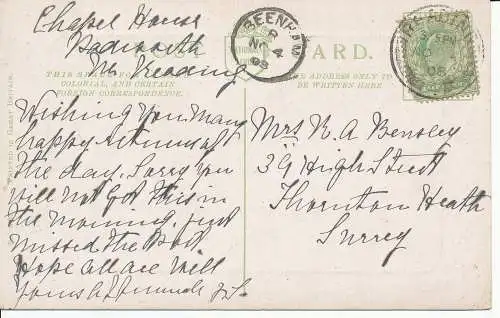 Chapel House
Padworth
Nr Reading
POST CARD.
THIS SPACE
COLONIAL, AND CERTAIN
FOREIGN CORRESPONDENCE.
ADDRESS ONLY TO
BE WRITTEN HERE
Printed in Great Britain.
BEENHAM
NO 4
08
Wishing You Many
happy returns of
the day. Sorry you
will not Got this in
the morning, just
missed the Post
Hope all are Well
Yours
Mrs R A Bensley
39 High Street
Thornton Heath
Surrey